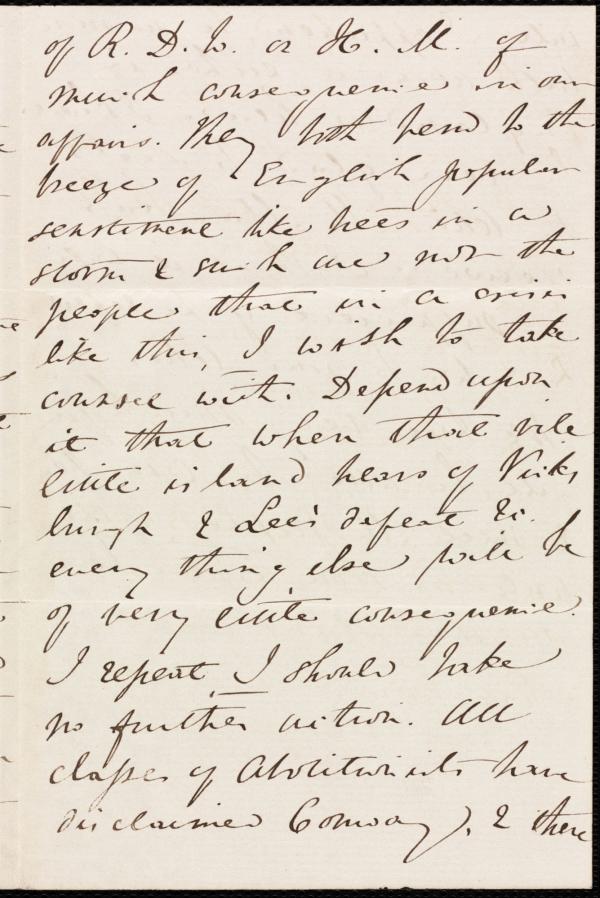 of R. D. W. or H. M. of
much consequence in our
affairs. They both bend to the
breeze of English popular
sentiment like trees in a
storm & such are not the
people that in a crisis
like this, I wish to take
counsel with. Depend upon
it that when that vile
little island hears of Vicks
burgh & Lee's defeat &c.
every thing else will be
of very little consequence.
I repeat, I should take
no further action. All
classes of Abolitionists have
disclaimed Conway), & there